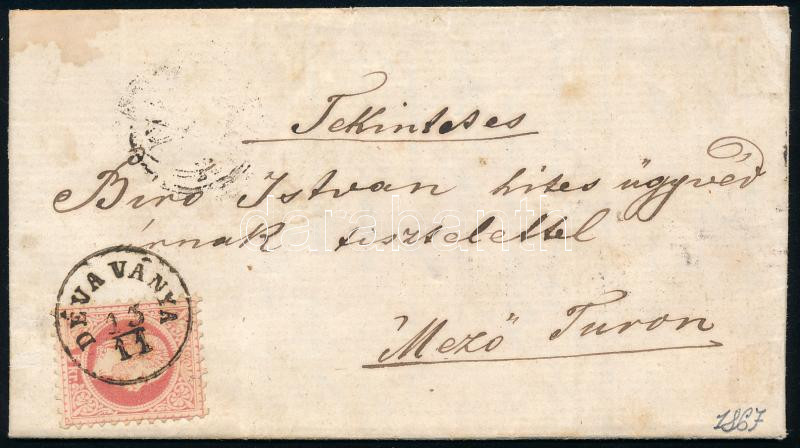 Tekintetes
Biró Istvan hites ügyvéd
úrnak tisztelettel
Mező Turon
DÉVA VÁNYA
15
11
KR.
1867
darabanth